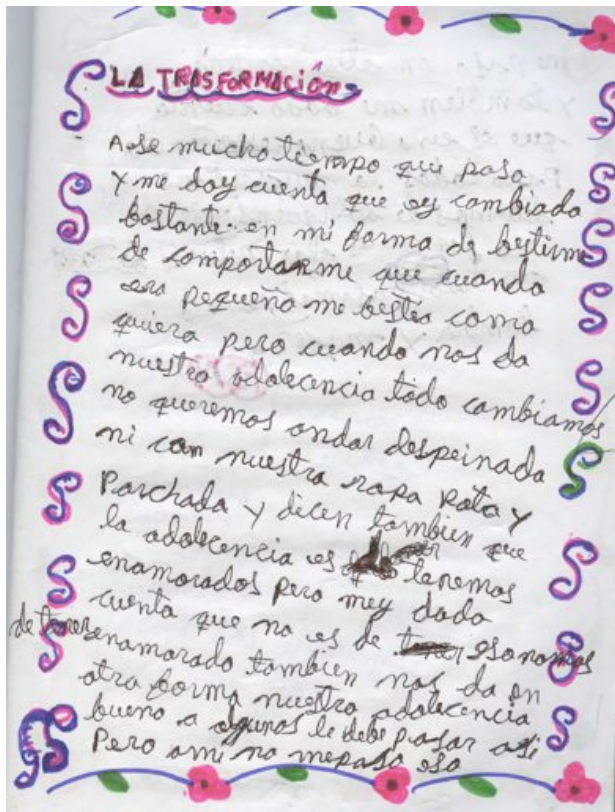 LA TRASFORMACIÓN
Ase mucho tiempo que paso
Y me doy cuenta que ey cambiado
bastante en mi forma de bestirme
de comportarme que cuando
era pequeña me bestia como
quiera pero cuando nos da
nuestra adolecencia todo cambiamos
no queremos andar despeinada
ni con nuestra ropa Rota y
Parchada y dicen tambien que
la adolecencia es tenemos
enamorados pero mey dado
cuenta que no es de tener eso nomas
de tener enamorado tambien nos da en
otra forma nuestra adolecencia
bueno a algunos le debe pasar asi
Pero ami no mepasa eso